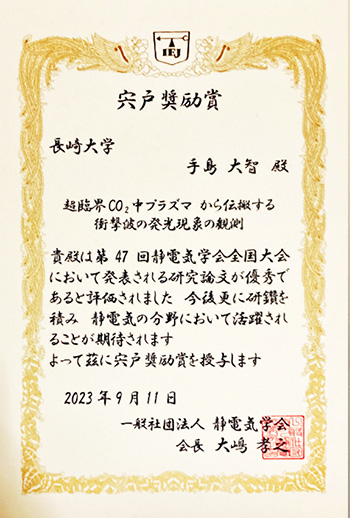 IEJ
宍戸奨励賞
長崎大学
手島 大智 殿
超臨界CO₂中プラズマ から伝搬する
衝撃波の発光現象の観測
貴殿は第 47 回静電気学会全国大会
において発表される研究論文が優秀で
あると評価されました 今後更に研鑽を
積み 静電気の分野において活躍され
ることが期待されます
よって茲に宍戸奨励賞を授与します
2023 年 9 月 11 日
一般社団法人 静電気学会
会長 大嶋 孝之